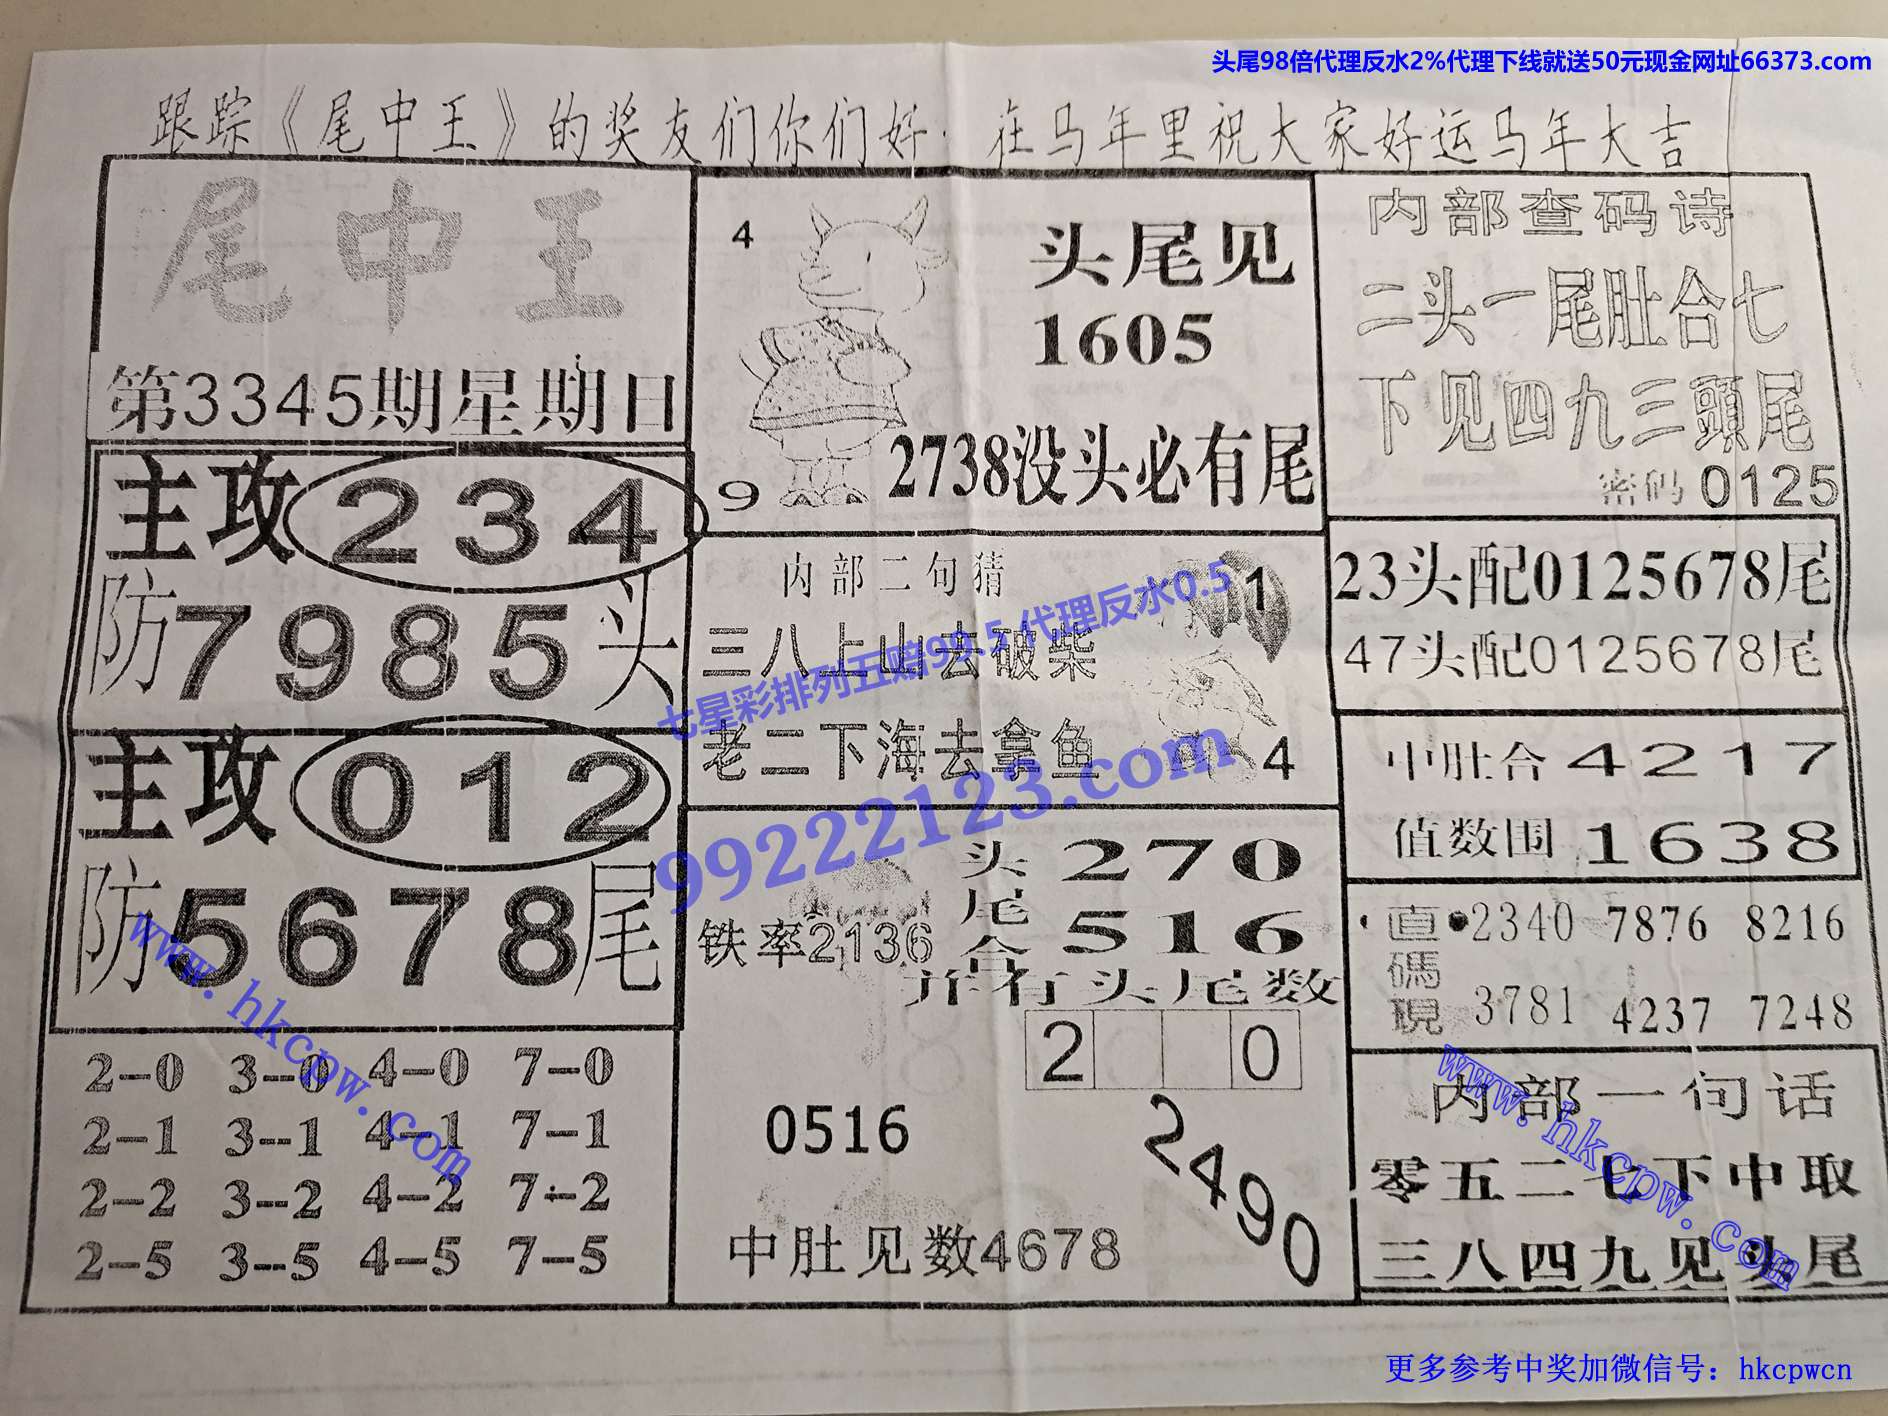 头尾98倍代理反水2%代理下线就送50元现金网址66373.com
跟踪《尾中王》的奖友们你们好. 在马年里祝大家好运马年大吉
尾中王
第3345期星期日
主攻234
防7985头
主攻012
防5678尾
2--0 3--0 4--0 7--0
2--1 3--1 4--1 7--1
2--2 3--2 4--2 7--2
2--5 3--5 4--5 7--5
4
头尾见
1605
2738没头必有尾
9
内部二句猜
1
三八上山去破柴
老二下海去拿鱼
4
七星彩排列五赔99.5 代理反水0.5
99222123.com
头 270
尾
合 516
铁率2136
并有头尾数
2 0
0516
2490
中肚见数4678
内部查码诗
二头一尾肚合七
下见四九三頭尾
密码 0125
23头配0125678尾
47头配0125678尾
中肚合 4217
值数围 1638
直碼現
2340 7876 8216
3781 4237 7248
内部一句话
零五二七下中取
三八四九见头尾
www.hkcpw.com
www.hkcpw.com
更多参考中奖加微信号：hkcpwcn